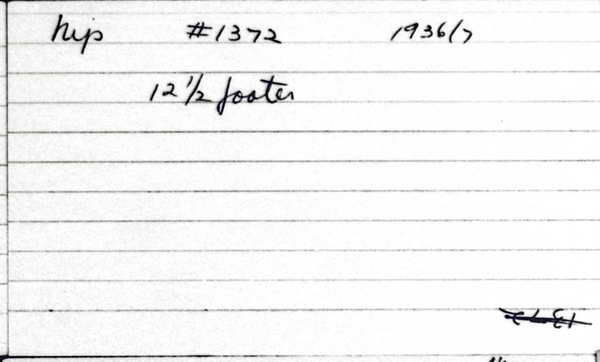 Nip #1372 1936/7
12 1/2 footer